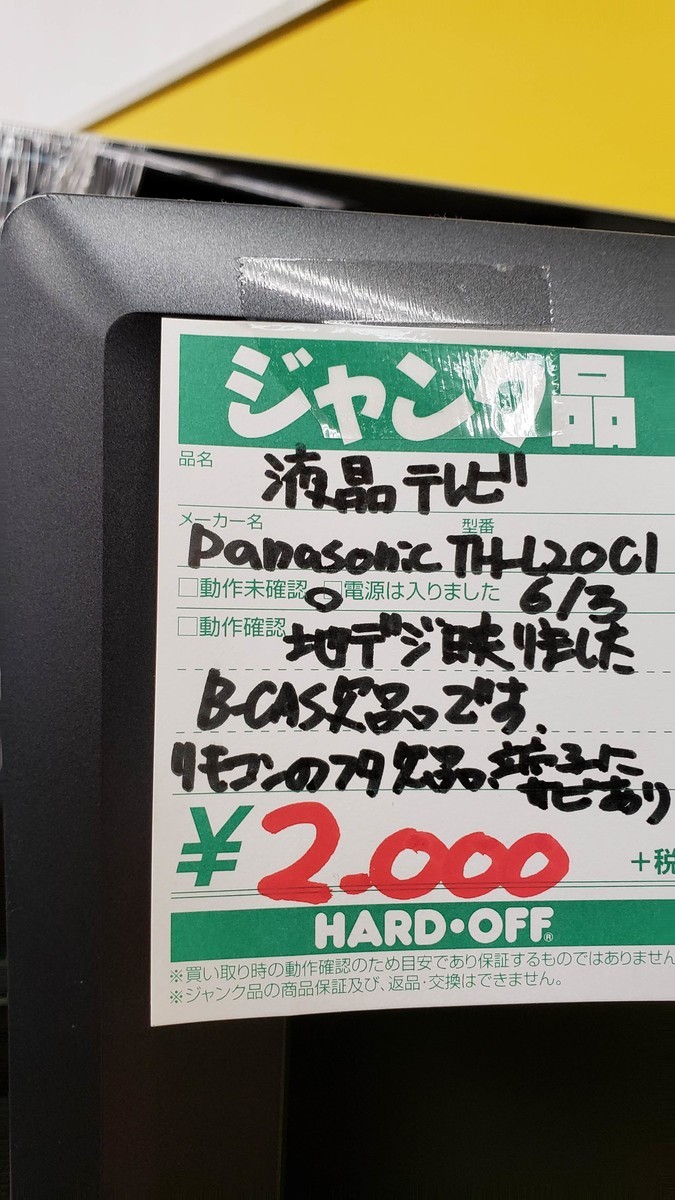 ジャンク品
品名
液晶テレビ
メーカー名 型番
Panasonic TH-L20C1
□動作未確認 □電源は入りました 6/3
□動作確認 地デジ映りました
B-CAS欠品です。
リモコンのフタ欠品、端子に
サビあり
¥2.000 +税
HARD・OFF®
※買い取り時の動作確認のため目安であり保証するものではありません
※ジャンク品の商品保証及び、返品・交換はできません。